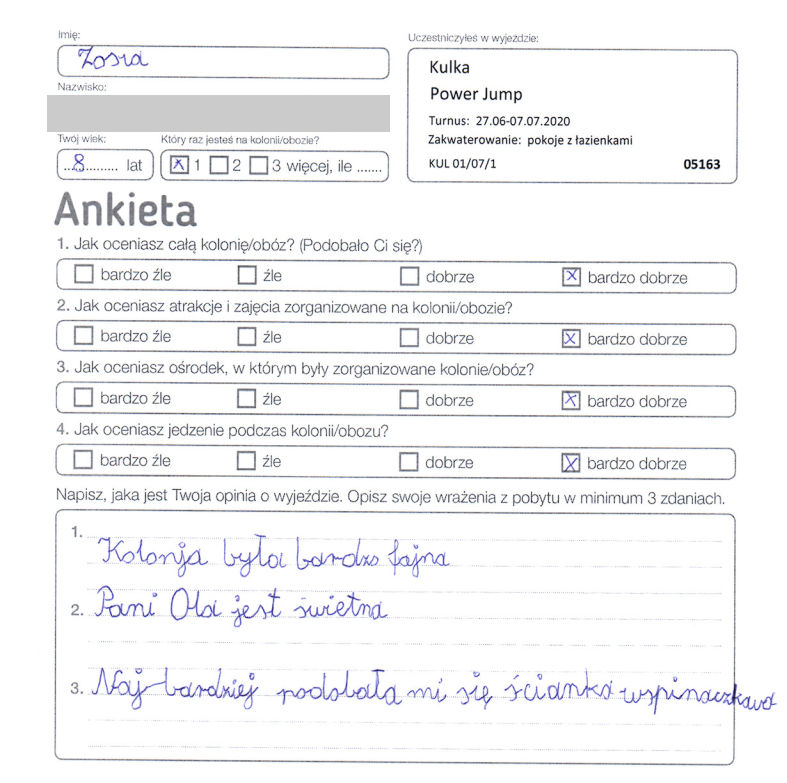 Imię:
Zosia
Nazwisko:
Twój wiek:
..8......... lat
Który raz jesteś na kolonii/obozie?
1 2 3 więcej, ile .......
Uczestniczyłeś w wyjeździe:
Kulka
Power Jump
Turnus: 27.06-07.07.2020
Zakwaterowanie: pokoje z łazienkami
KUL 01/07/1 05163
Ankieta
1. Jak oceniasz całą kolonię/obóz? (Podobało Ci się?)
bardzo źle źle dobrze bardzo dobrze
2. Jak oceniasz atrakcje i zajęcia zorganizowane na kolonii/obozie?
bardzo źle źle dobrze bardzo dobrze
3. Jak oceniasz ośrodek, w którym były zorganizowane kolonie/obóz?
bardzo źle źle dobrze bardzo dobrze
4. Jak oceniasz jedzenie podczas kolonii/obozu?
bardzo źle źle dobrze bardzo dobrze
Napisz, jaka jest Twoja opinia o wyjeździe. Opisz swoje wrażenia z pobytu w minimum 3 zdaniach.
1. Kolonja była bardzo fajna
2. Pani Ola jest świetna
3. Naj-bardziej podobała mi się ścianka wspinaczkawa